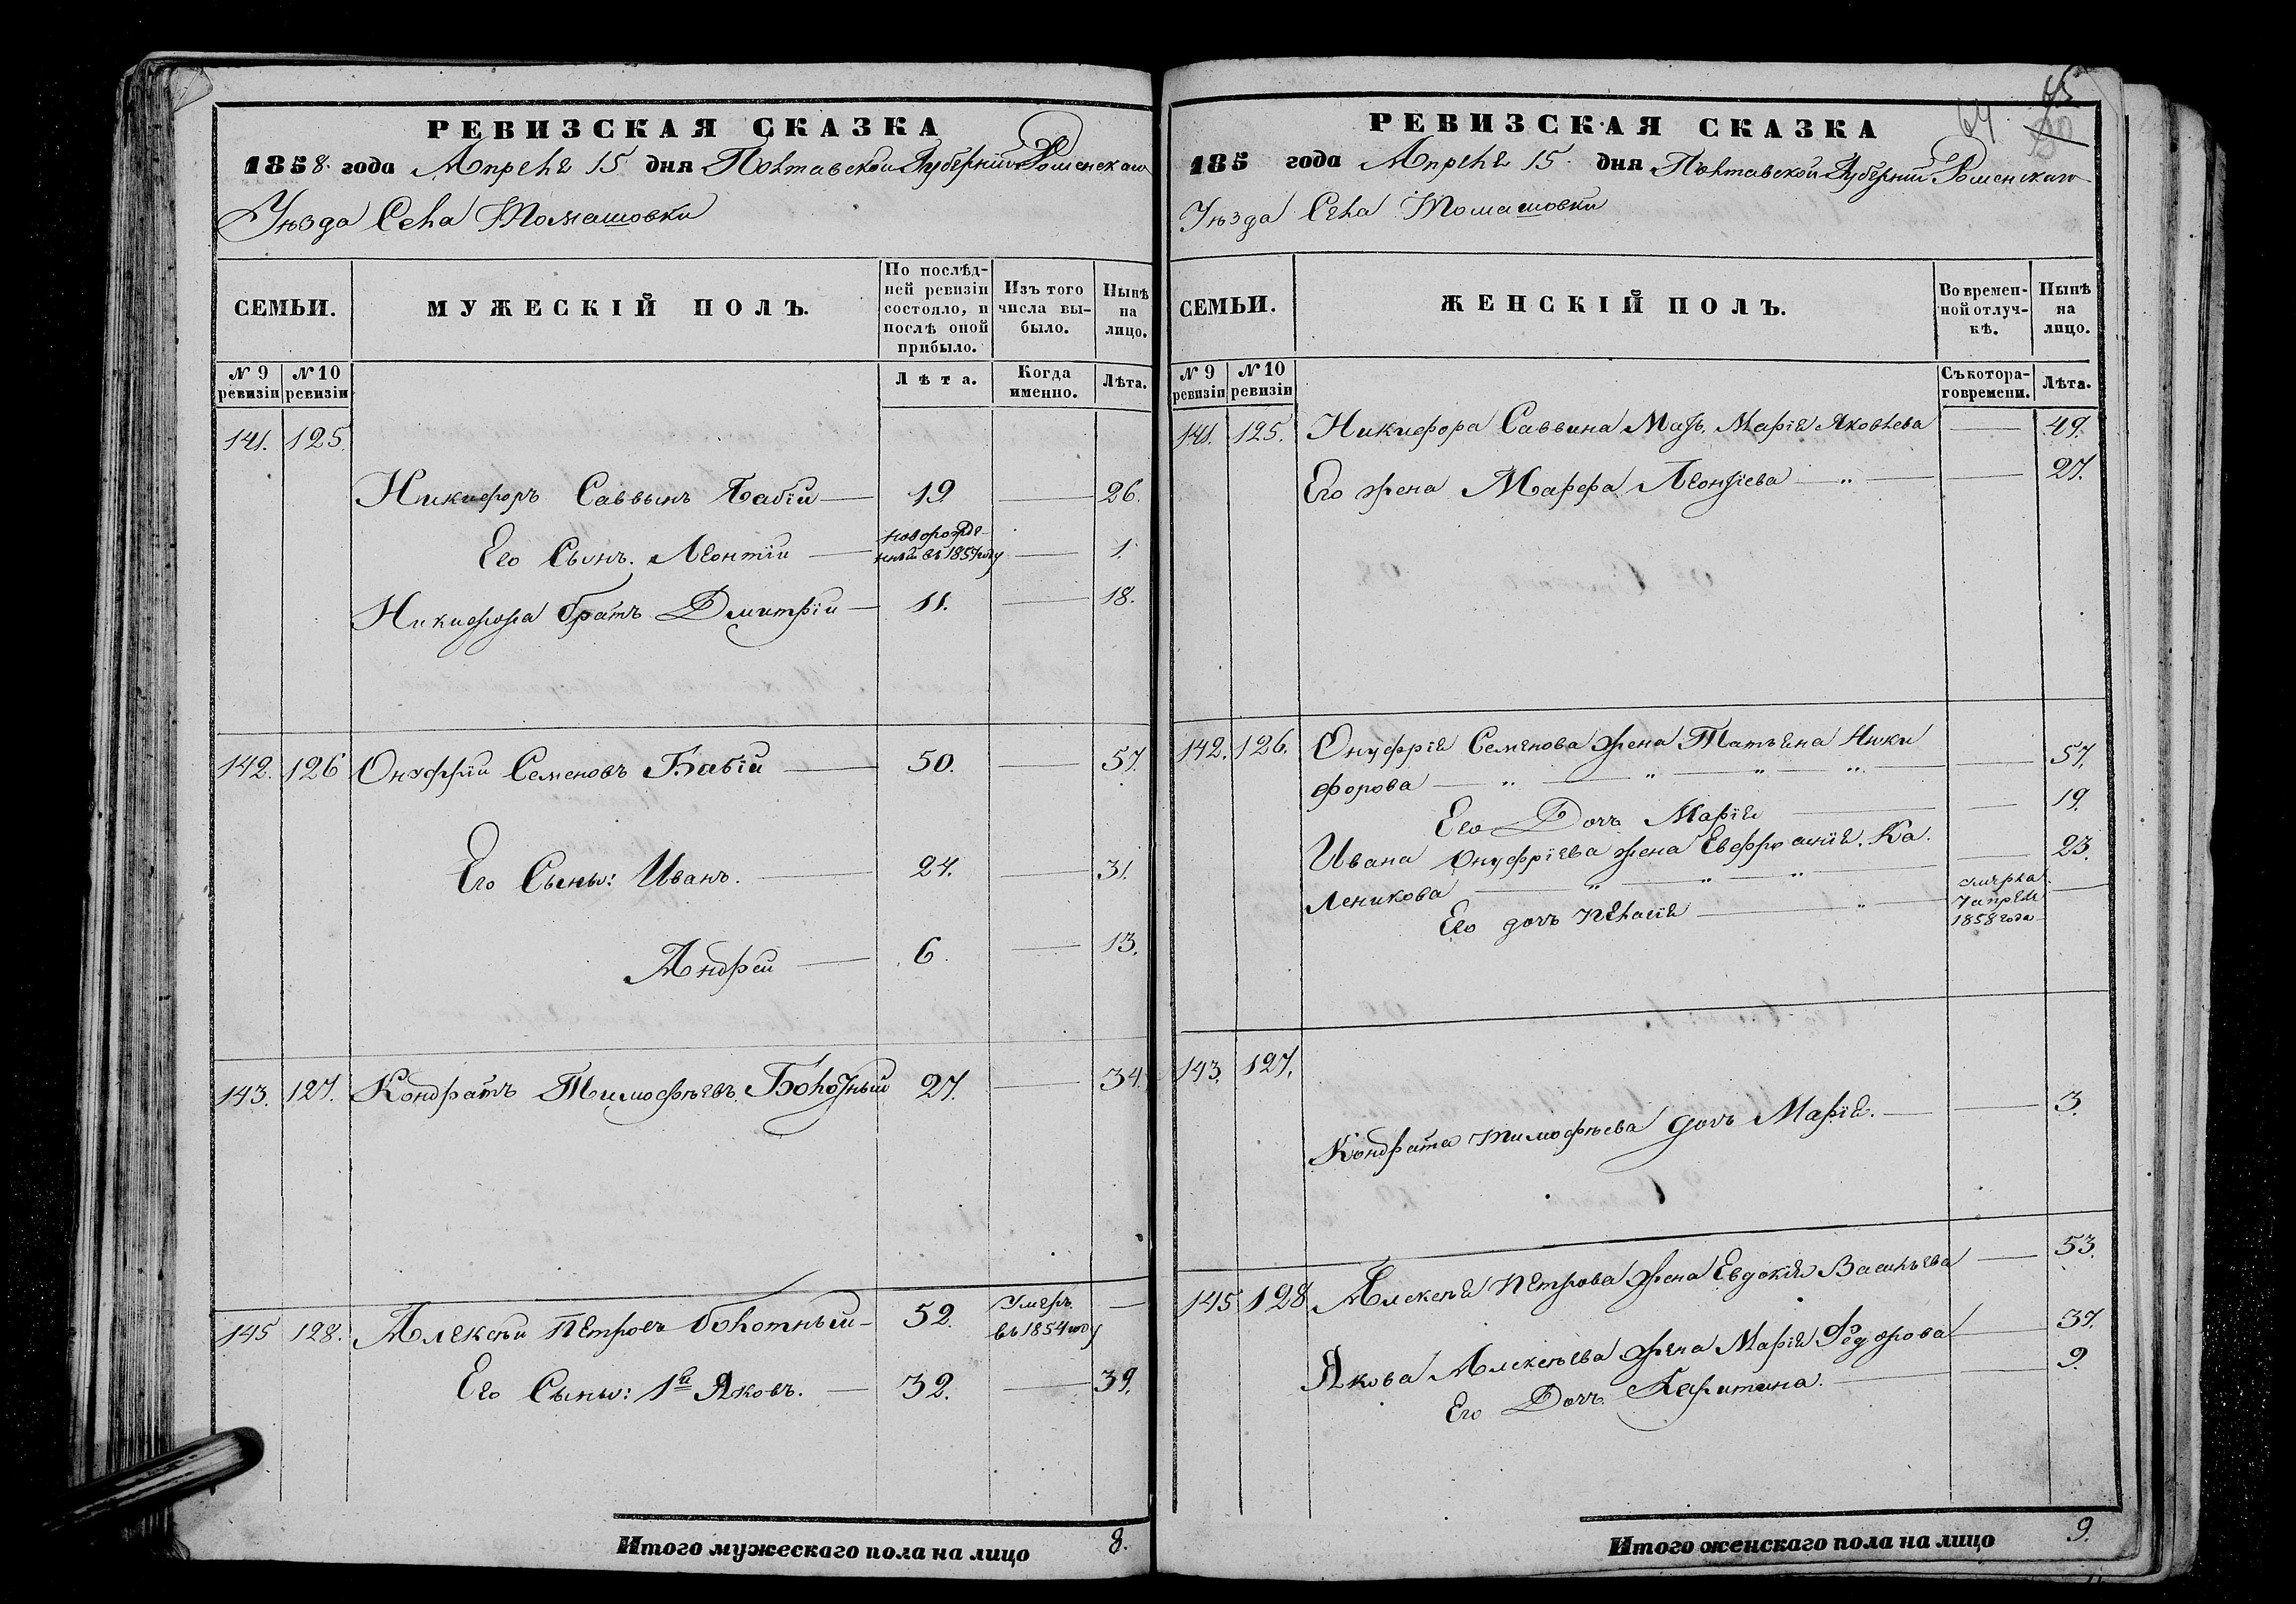 РЕВИЗСКАЯ СКАЗКА
1858. года Апреля 15 дня Полтавской Губерніи Роменскаго
Уѣзда Села Томашовки
СЕМЬИ.
МУЖЕСКІЙ ПОЛЪ.
По послѣд-
ней ревизіи
состояло, и
послѣ оной
прибыло.
Изъ того
числа вы-
было.
Нынѣ
на
лицо.
№ 9
ревизіи
№ 10
ревизіи
Лѣта.
Когда
именно.
Лѣта.
141. 125.
Никифоръ Саввинъ Бабій 19 26.
Его Сынъ. Леонтій новорожде-
нный въ 1857 году 1.
Никифора братъ Дмитрій 11. 18.
142. 126 Онуфрій Семеновъ Бабій 50. 57.
Его Сыны: Иванъ. 24. 31.
Андрей 6. 13.
143. 127. Кондратъ Тимофѣевъ Болотный 27. 34.
145 128. Алексѣй Петровъ болотный 52. Умеръ
въ 1854 году
Его Сыны: 1й Яковъ. 32. 39.
Итого мужескаго пола на лицо 8.
64 65
РЕВИЗСКАЯ СКАЗКА
185 года Апреля 15. дня Полтавской Губерніи Роменскаго
Уѣзда Села Томашовки
СЕМЬИ.
ЖЕНСКІЙ ПОЛЪ.
Во времен-
ной отлуч-
кѣ.
Нынѣ
на
лицо.
№ 9
ревизіи
№ 10
ревизіи
Съ котора-
го времени.
Лѣта.
141. 125. Никифора Саввина Мать. Марія Яковлева 49.
Его жена Марфа Леонтіева 27.
142. 126. Онуфрія Семенова жена Татьяна Ники
форова 57.
Его Дочь Марія 19.
Ивана Онуфріева жена Евфросинія. Ка
леникова 23.
Его дочь Пелагія умерла
7 апреля
1858 года
143. 127.
Кондрата Тимофѣева дочь Марія. 3.
145 128 Алексѣя Петрова жена Евдокія Васильева 53.
Якова Алексѣева жена Марія Федорова 37.
Его Дочь Харитина. 9.
Итого женскаго пола на лицо 9.